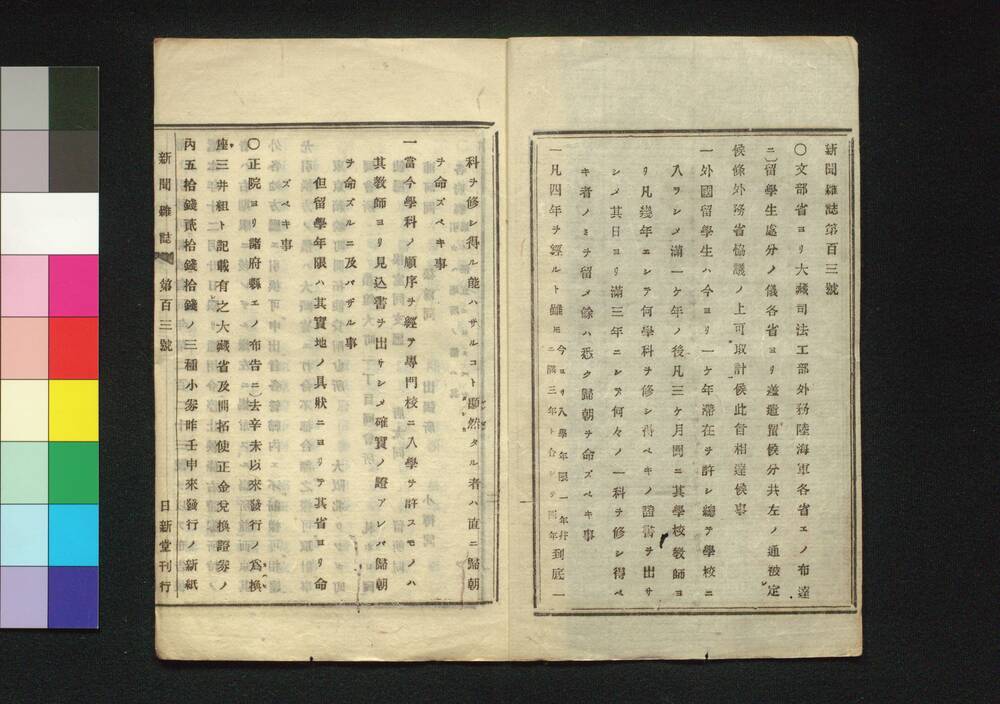 新聞雜誌第百三號
〇文部省ヨリ大藏司法工部外務陸海軍各省エノ布達
ニ)留學生處分ノ儀各省ヨリ差遣置候分共左ノ通被定
候條外務省協議ノ上可取計候此旨相達候事
一外國留學生ハ今ヨリ一ケ年滯在ヲ許シ總テ學校ニ
入ラシメ滿一ケ年ノ後凡三ケ月間ニ其學校敎師ヨ
リ凡幾年ニシテ何學科ヲ修シ得ベキノ證書ヲ出サ
シメ其日ヨリ滿三年ニシテ何々ノ一科ヲ修シ得ベ
キ者ノミヲ留メ餘ハ悉ク歸朝ヲ命ズベキ事
一凡四年ヲ經ルト雖モ今ヨリ入學年限一年幷ニ滿三年ト合シテ四年到底一
科ヲ修シ得ル能ハザルコト顯然タル者ハ直ニ歸朝
ヲ命ズベキ事
一當今學科ノ順序ヲ經テ專門校ニ入學サ許スモノハ
其敎師ヨリ見込書ヲ出サシメ確實ノ證アレバ歸朝
ヲ命ズルニ及バザル事
但留學年限ハ其實地ノ具狀ニヨリテ其省ヨリ命
ズベキ事
〇正院ヨリ諸府縣エノ布告ニ)去辛未以來發行ノ爲換
座三井組ト記載有之大藏省及開拓使正金兌換證劵ノ
內五拾錢貳拾錢拾錢ノ三種小劵昨壬申來發行ノ新紙
新聞雜誌 第百三號 日新堂刊行